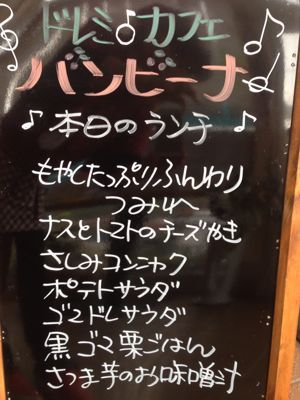 ドレミ♪カフェ
バンビーナ
♪本日のランチ♪
もやしたっぷりふんわり
つみれ
ナスとトマトのチーズやき
さしみコンニャク
ポテトサラダ
ゴマドレサラダ
黒ゴマ栗ごはん
さつま芋のお味噌汁